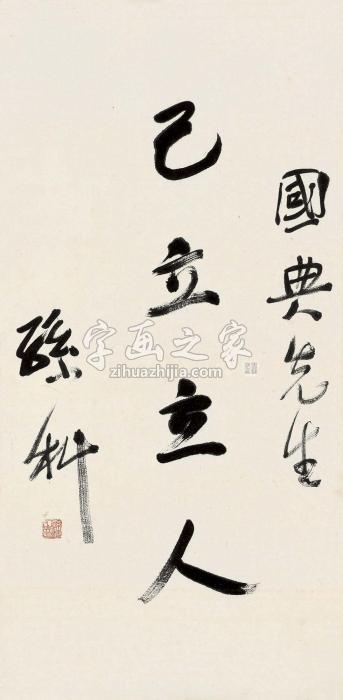 國典先生
己立立人
孫科
字画之家
zihuazhijia.com